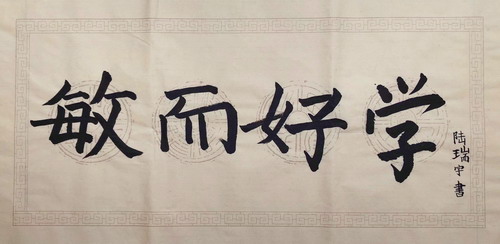 敏而好学
陆瑞宇书